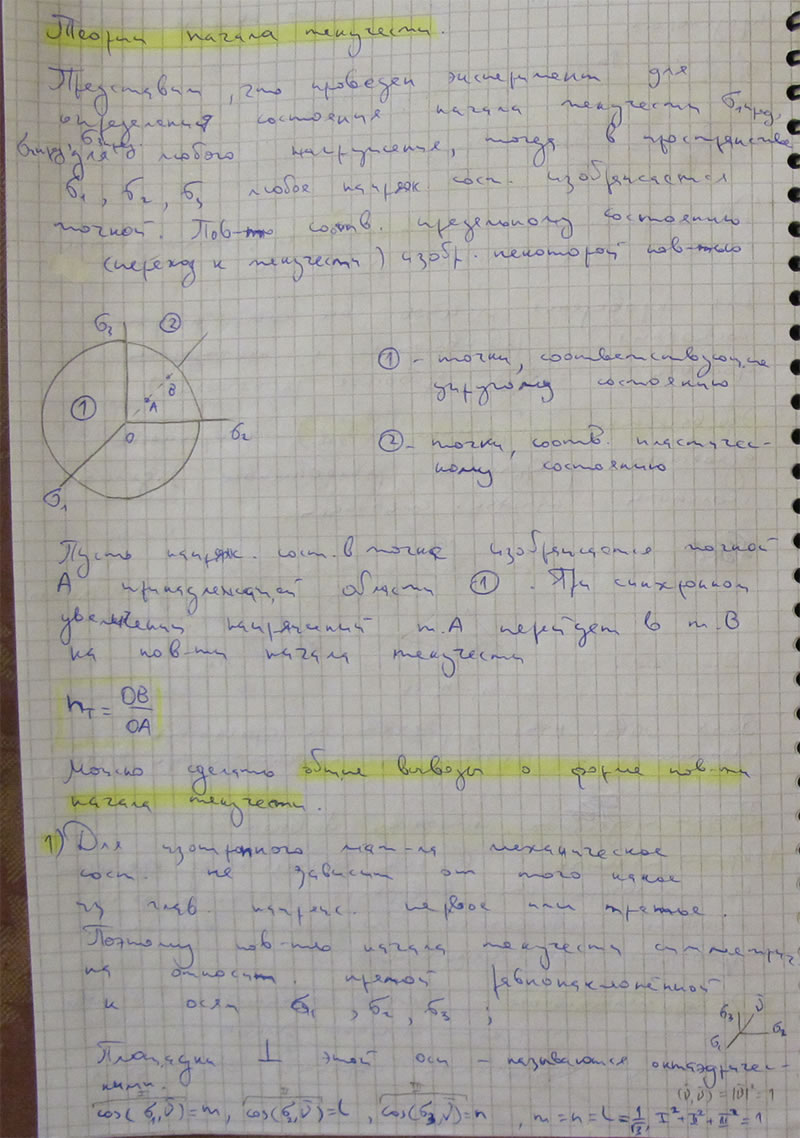 Теории начала текучести.
Представим, что проведен эксперимент для
определения состояния начала текучести σ1пред,
σ2пред, σ3пред. для любого нагружения, тогда в пространстве
σ1, σ2, σ3 любое напряж сост. изображается
точкой. Пов-ть соотв. предельному состоянию
(переход к текучести) изобр. некоторой пов-тью
σ3 ②
① - точки, соответствующие
упругому состоянию
① A B
O σ2
② - точки, соотв. пластичес-
кому состоянию
σ1
Пусть напряж. сост. в точке изображается точкой
А принадлежащей области ①. При синхронном
увеличении напряжений т.А перейдет в т.В
на пов-ти начала текучести
nт = OB/OA
Можно сделать общие выводы о форме пов-ти
начала текучести.
1) Для изотропного мат-ла механическое
сост. не зависит от того какое
из глав. напряж. первое или третье.
Поэтому пов-ть начала текучести симметрич-
на относит. прямой равнонаклонённой
к осям σ1, σ2, σ3;
σ3 ν̄
σ1 σ2
Площадки ⊥ этой оси - называются октаэдричес-
кими.
(ν̄,ν̄) = |ν̄|² = 1
cos(σ1,ν̄)=m, cos(σ2,ν̄)=l, cos(σ3,ν̄)=n, m=n=l=1/√3, I²+II²+III²=1